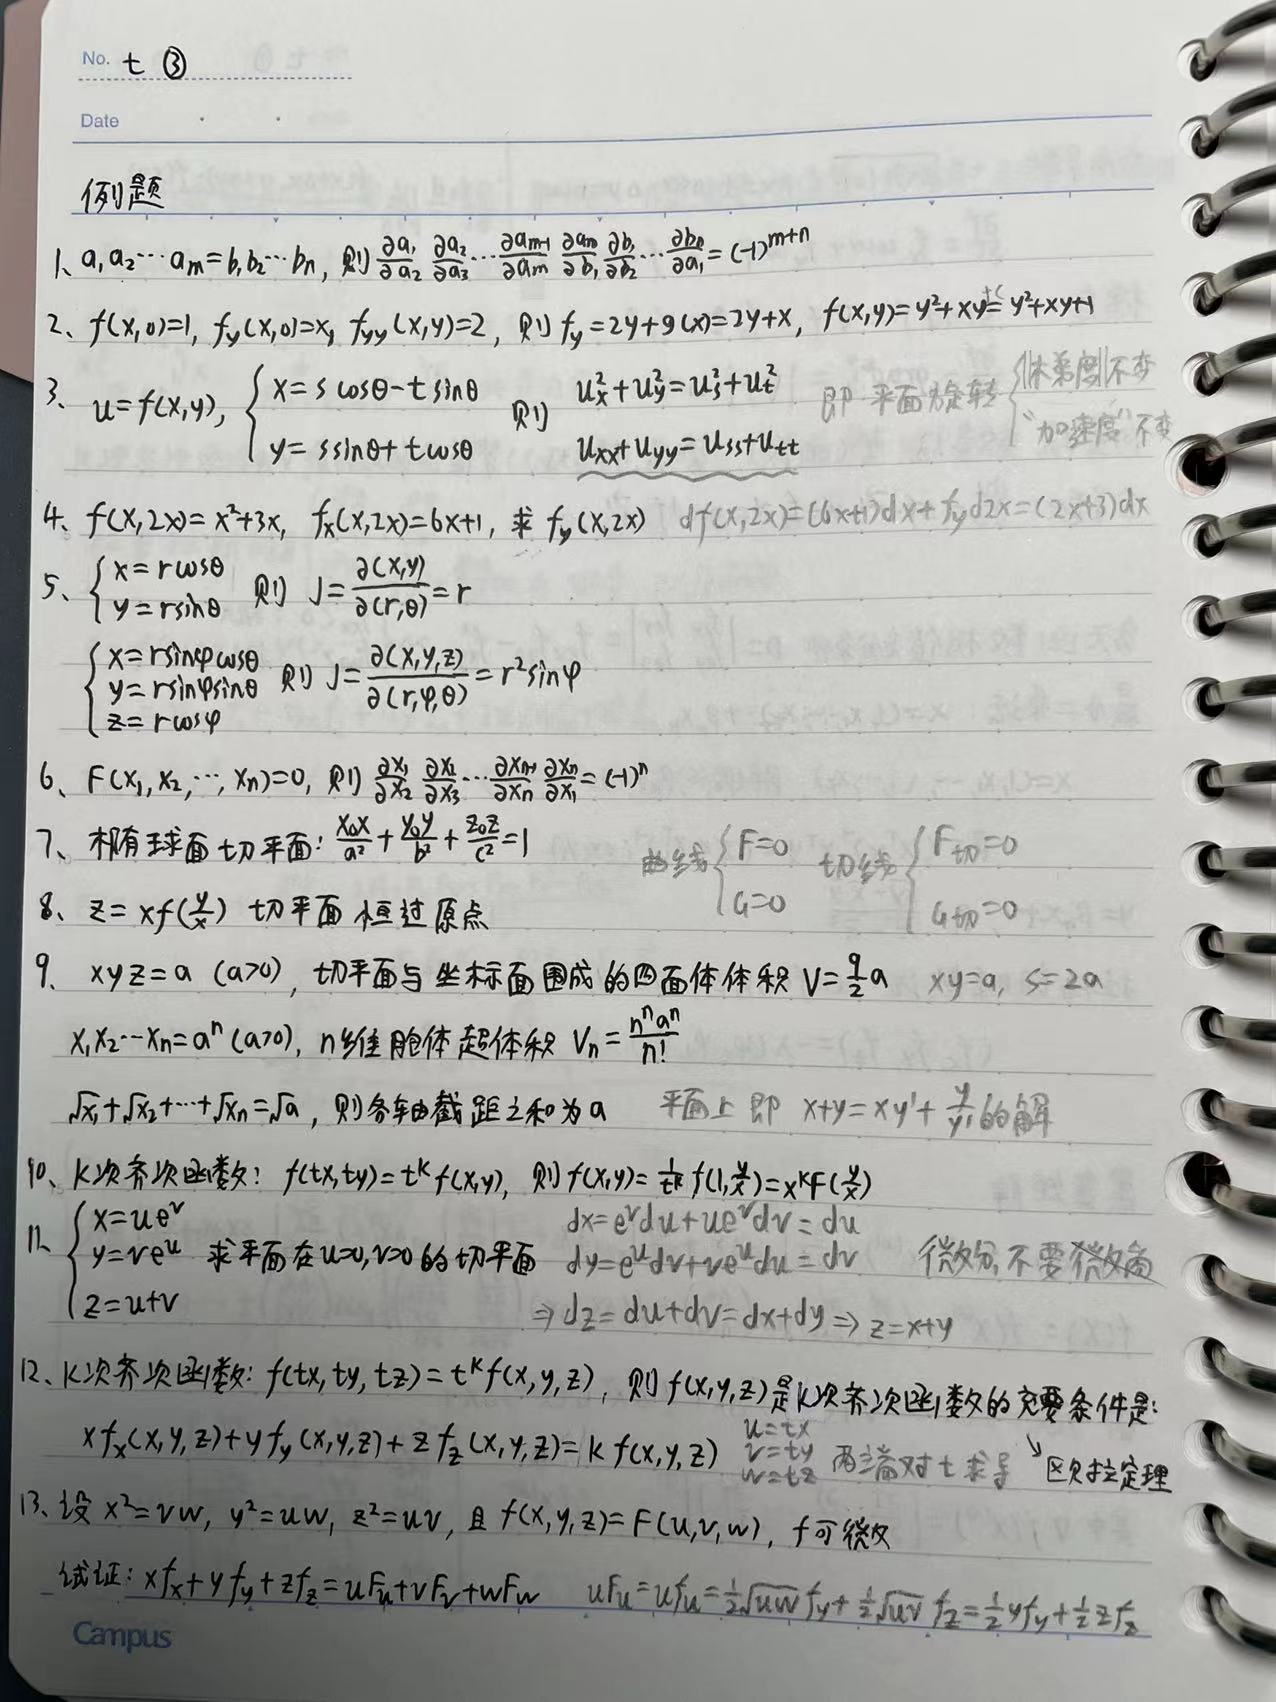 No. t ③
Date
例题
1、a₁a₂⋯aₘ=b₁b₂⋯bₙ, 则 ∂a₁/∂a₂ ∂a₂/∂a₃ ⋯ ∂aₘ₋₁/∂aₘ ∂aₘ/∂b₁ ∂b₁/∂b₂ ⋯ ∂bₙ/∂a₁ = (-1)^(m+n)
2、f(x,0)=1, f_y(x,0)=x, f_yy(x,y)=2, 则 f_y=2y+g(x)=2y+x, f(x,y)=y²+xy+c=y²+xy+1
3、u=f(x,y), { x=s cosθ-t sinθ  y=s sinθ+t cosθ 则 u_x²+u_y²=u_s²+u_t²  u_xx+u_yy=u_ss+u_tt 即 平面旋转 { |梯度|不变 “加速度”不变
4、f(x,2x)=x²+3x, f_x(x,2x)=6x+1, 求 f_y(x,2x) df(x,2x)=(6x+1)dx+f_y d2x=(2x+3)dx
5、{ x=rcosθ  y=rsinθ 则 J=∂(x,y)/∂(r,θ)=r
{ x=rsinφcosθ  y=rsinφsinθ  z=rcosφ 则 J=∂(x,y,z)/∂(r,φ,θ)=r²sinφ
6、F(x₁,x₂,⋯,xₙ)=0, 则 ∂x₁/∂x₂ ∂x₂/∂x₃ ⋯ ∂xₙ₋₁/∂xₙ ∂xₙ/∂x₁ = (-1)ⁿ
7、椭球面切平面: x₀x/a²+y₀y/b²+z₀z/c²=1 曲线 { F=0  G=0 切线 { F切=0  G切=0
8、z=xf(y/x) 切平面恒过原点
9、xyz=a (a>0), 切平面与坐标面围成的四面体体积 V=9/2 a xy=a, S=2a
x₁x₂⋯xₙ=aⁿ(a>0), n维胞体超体积 Vₙ=nⁿaⁿ/n!
√x₁+√x₂+⋯+√xₙ=√a, 则各轴截距之和为a 平面上即 x+y=xy'+y/y'的解
10、k次齐次函数: f(tx,ty)=tᵏf(x,y), 则f(x,y)=1/tᵏ f(1,y/x)=xᵏF(y/x)
11、{ x=ueᵛ  y=veᵘ  z=u+v 求平面在u=0,v=0的切平面 dx=eᵛdu+ueᵛdv=du  dy=eᵘdv+veᵘdu=dv 微分,不要微商
⇒dz=du+dv=dx+dy⇒z=x+y
12、k次齐次函数: f(tx,ty,tz)=tᵏf(x,y,z), 则f(x,y,z)是k次齐次函数的充要条件是:
xf_x(x,y,z)+yf_y(x,y,z)+zf_z(x,y,z)=kf(x,y,z) u=tx v=ty w=tz 两端对t求导 ↘欧拉定理
13、设 x²=vw, y²=uw, z²=uv, 且 f(x,y,z)=F(u,v,w), f可微
试证: xf_x+yf_y+zf_z=uF_u+vF_v+wF_w uF_u=uf_u=½√uw f_y+½√uv f_z=½yf_y+½zf_z
Campus